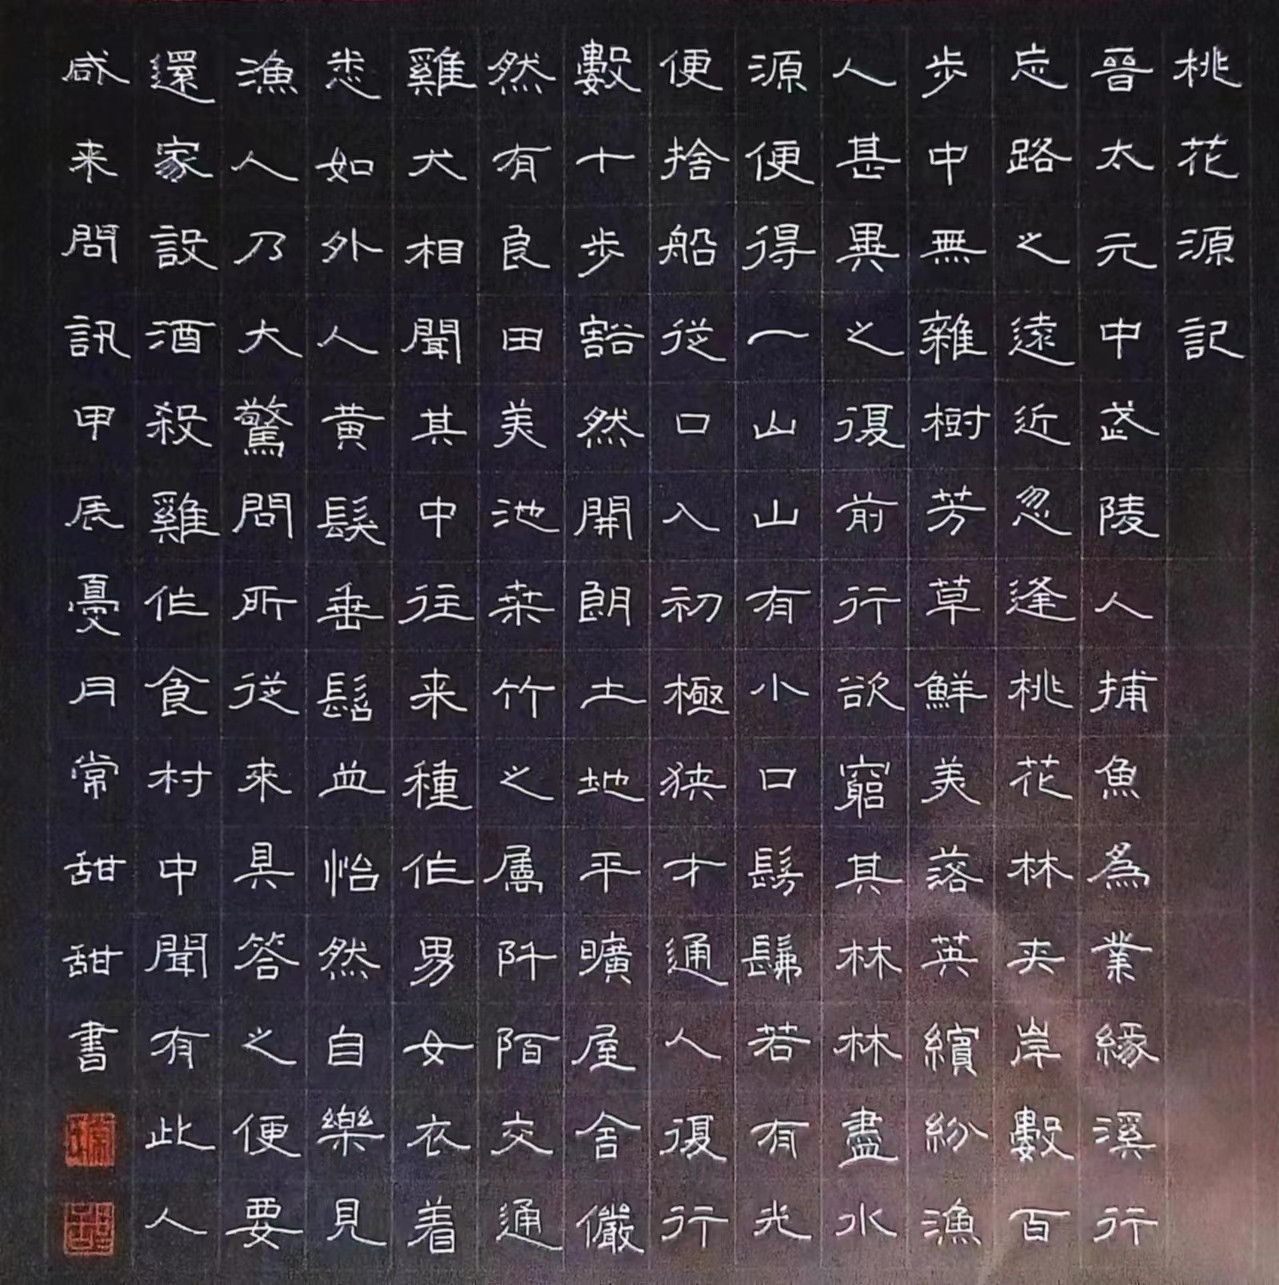 桃花源記
晉太元中武陵人捕魚為業緣溪行
忘路之遠近忽逢桃花林夾岸數百
步中無雜樹芳草鮮美落英繽紛漁
人甚異之復前行欲窮其林林盡水
源便得一山山有小口髣髴若有光
便捨船從口入初極狹才通人復行
數十步豁然開朗土地平曠屋舍儼
然有良田美池桑竹之屬阡陌交通
雞犬相聞其中往来種作男女衣着
悉如外人黃髮垂髫並怡然自樂見
漁人乃大驚問所從來具答之便要
還家設酒殺雞作食村中聞有此人
咸来問訊甲辰夏月常甜甜書